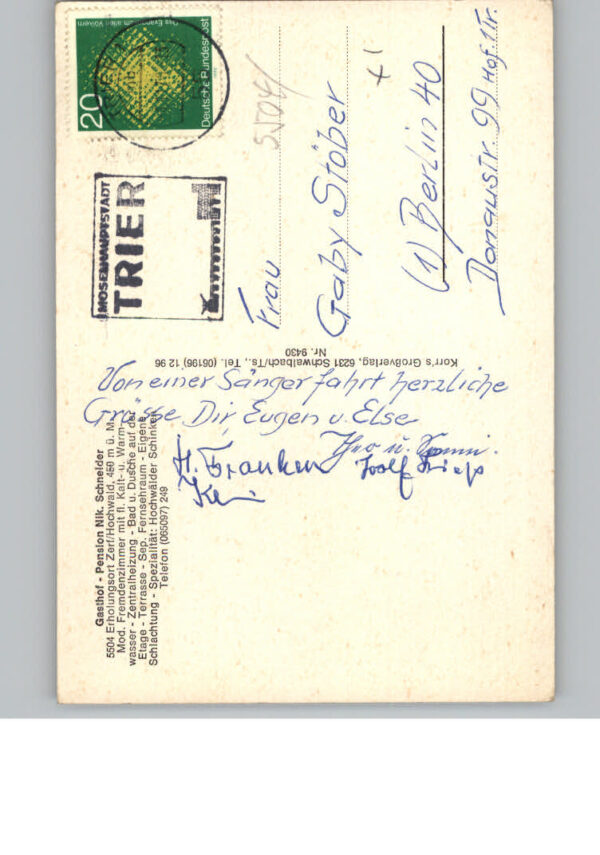 Gasthof - Pension Nik. Schneider
5504 Erholungsort Zerf/Hochwald, 450 m ü. M.
Mod. Fremdenzimmer mit fl. Kalt- u. Warm-
wasser - Zentralheizung - Bad u. Dusche auf der
Etage - Terrasse - Sep. Fernsehraum - Eigene
Schlachtung - Spezialität: Hochwälder Schinken
Telefon (065097) 249
Von einer Sängerfahrt herzliche
Grüsse Dir, Eugen u. Else
H. Franken
Korr's Großverlag, 6231 Schwalbach/Ts., Tel. (06196) 12 96
Nr. 9430
20
Das Evangelium allen Völkern
Deutsche Bundespost
MOSELHAUPTSTADT
TRIER
5504
Frau
Gaby Stöber
(1) Berlin 40
Donaustr. 99 Hof. 1Tr.